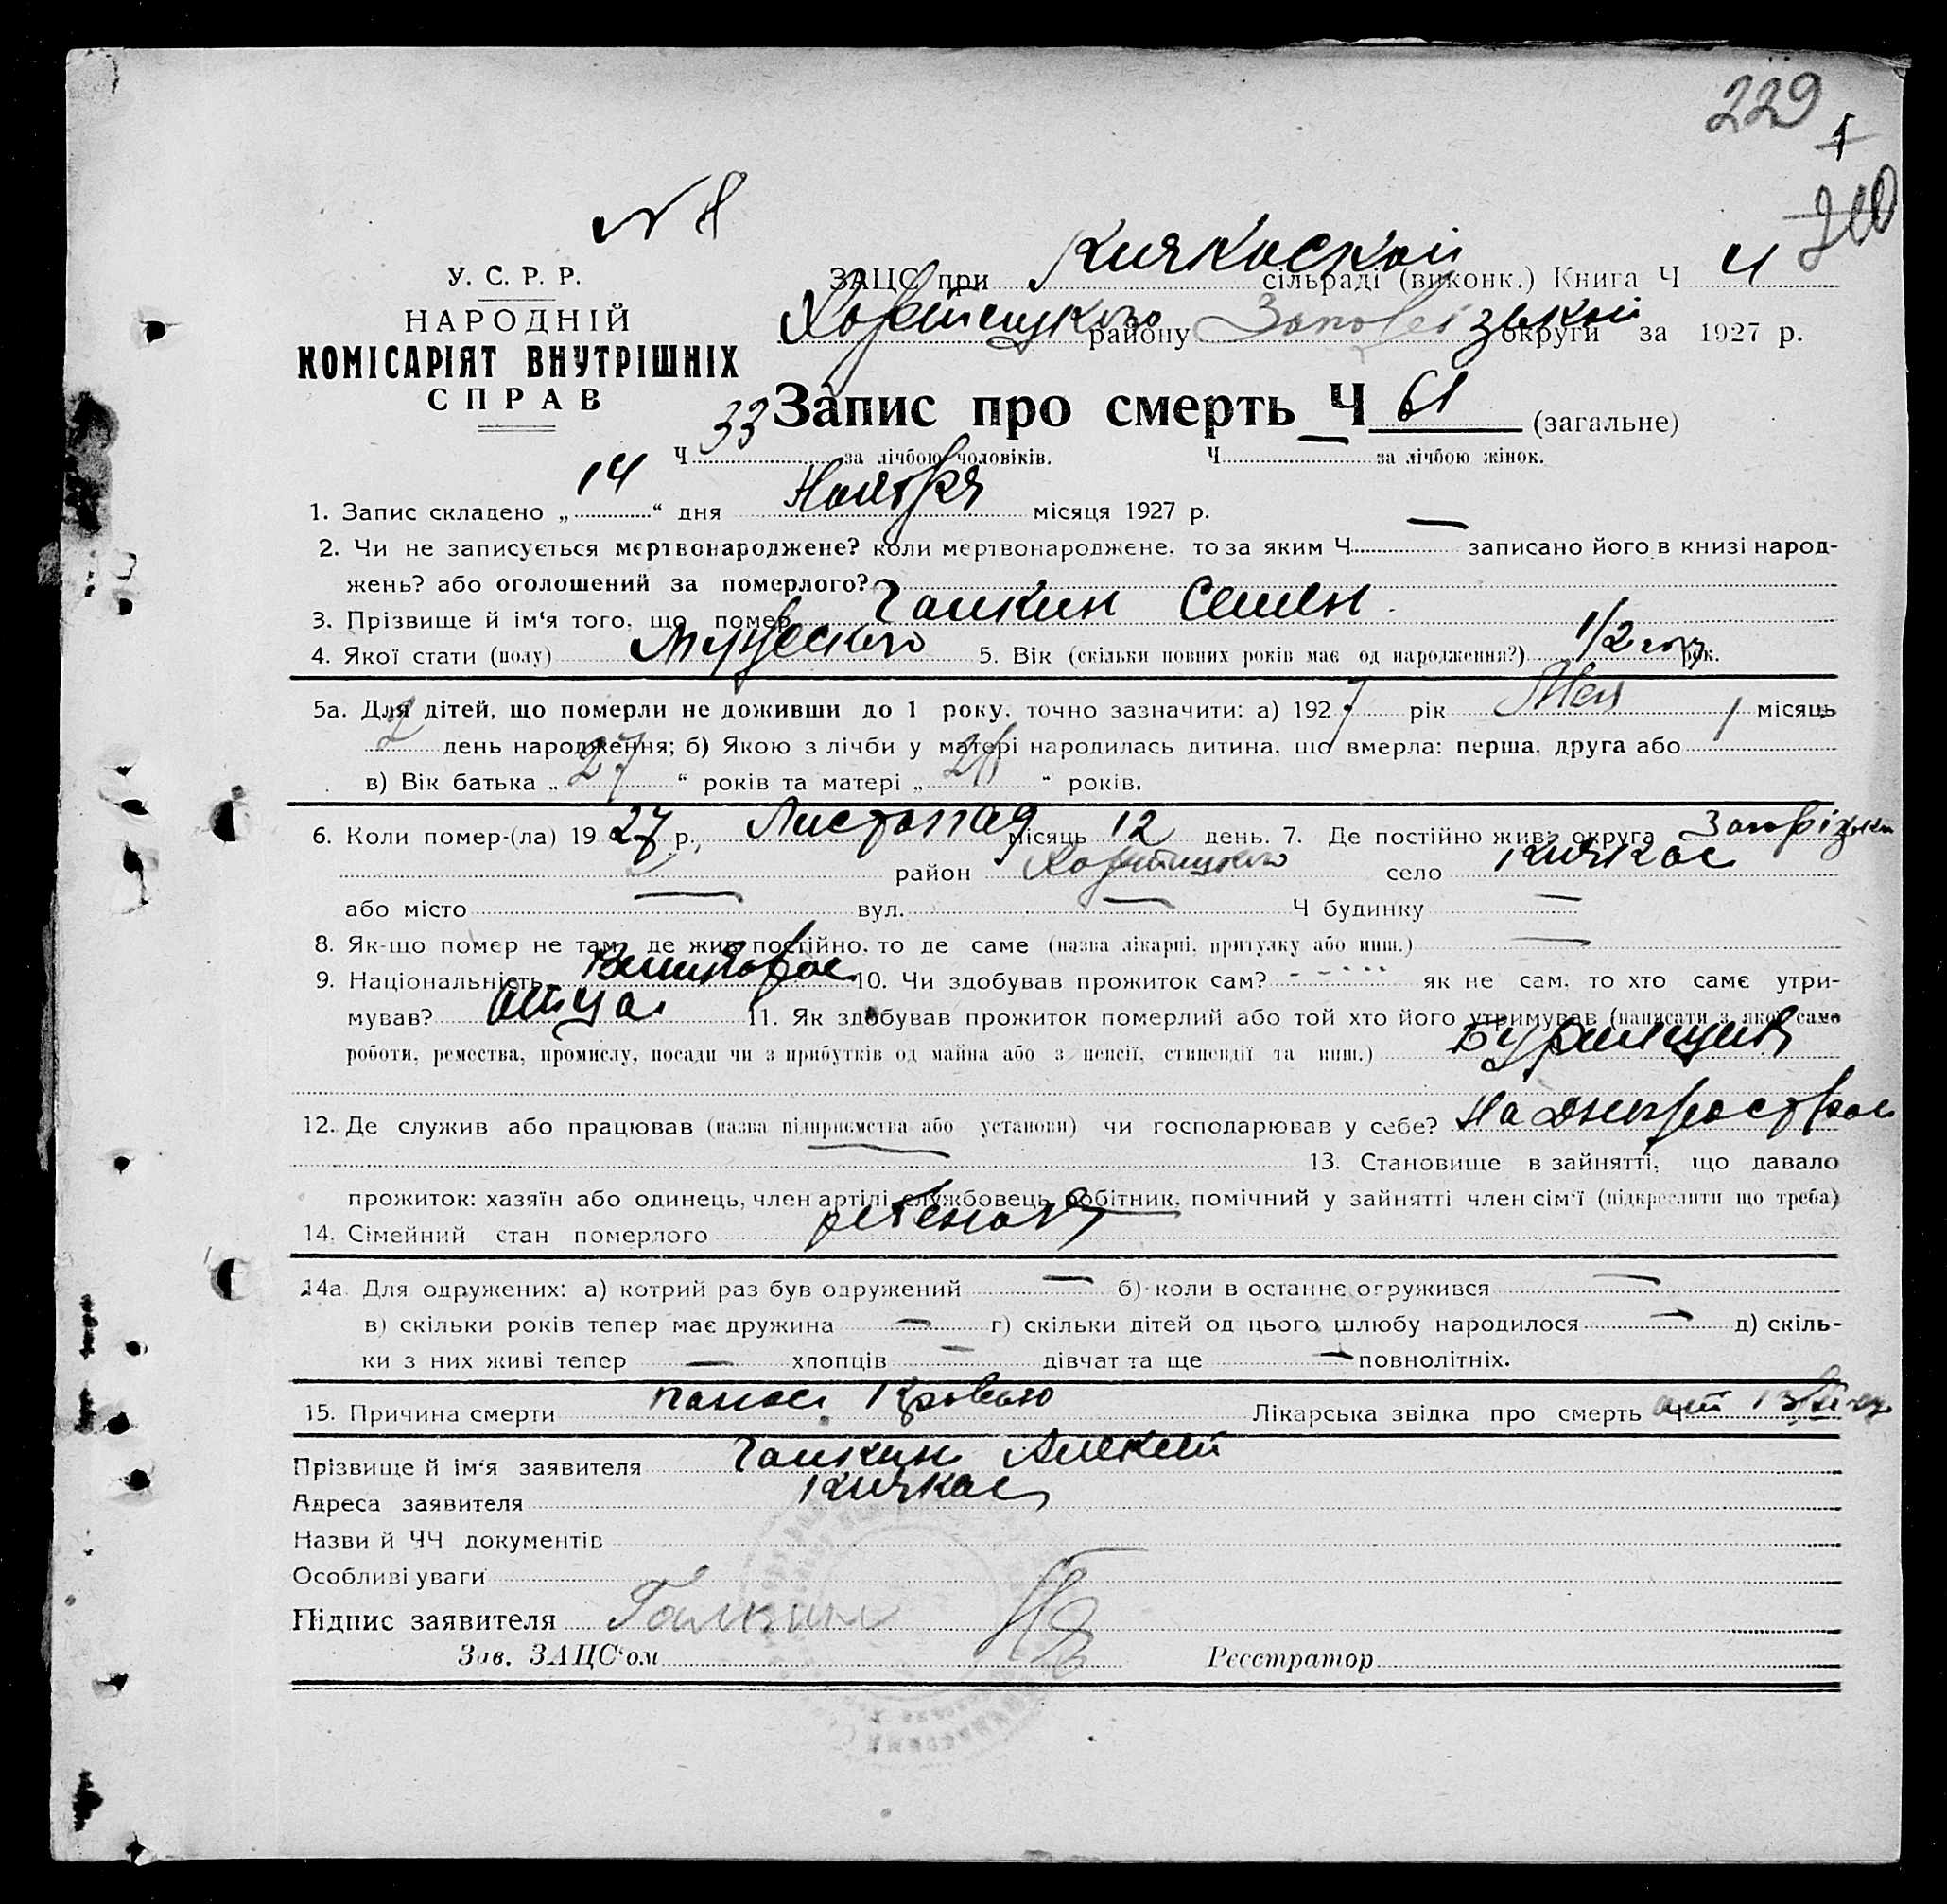 229
1
210
N 8
У. С. Р. Р.
НАРОДНІЙ
КОМІСАРІЯТ ВНУТРІШНІХ
СПРАВ
ЗАЦС при Кичкаской сільраді (виконк.) Книга Ч 4
Хортицкого району Запорізької округи за 1927 р.
Запис про смерть Ч 61 (загальне)
Ч 33 за лічбою чоловіків. Ч — за лічбою жінок.
1. Запис складено „ 14 “ дня Ноября місяця 1927 р.
2. Чи не записується мертвонароджене? коли мертвонароджене, то за яким Ч — записано його в книзі народ-
жень? або оголошений за померлого?
3. Прізвище й ім‘я того, що помер Галкин Семен.
4. Якої стати (полу) Мужеского 5. Вік (скільки повних років має од народження?) 1/2 году рок.
5а. Для дітей, що померли не доживши до 1 року, точно зазначити: а) 1927 рік Мая місяць
2 день народження; б) Якою з лічби у матері народилась дитина, що вмерла: перша, друга або
в) Вік батька „ 27 “ років та матері „ “ років.
6. Коли помер-(ла) 1927 р., Листопад місяць 12 день. 7. Де постійно жив: округа
район Хортицкого село Кичкас
або місто — вул. — Ч будинку —
8. Як-що помер не там, де жив постійно, то де саме (назва лікарні, притулку або инш.) —
9. Національність 10. Чи здобував прожиток сам? - - - - - як не сам, то хто саме утри-
мував? отца 11. Як здобував прожиток померлий або той хто його утримував (написати з якої саме
роботи, ремества, промислу, посади чи з прибутків од майна або з пенсії, стипендії та инш.) Бурильщик
12. Де служив або працював (назва підприємства або установи) чи господарював у себе? На Днепрострое
— 13. Становище в зайнятті, що давало
прожиток: хазяїн або одинець, член артілі, службовець, робітник, помічний у зайнятті член сім‘ї (підкреслити що треба)
14. Сімейний стан померлого ребенок
14а. Для одружених: а) котрий раз був одружений — б) коли в останнє одружився —
в) скільки років тепер має дружина — г) скільки дітей од цього шлюбу народилося — д) скіль-
ки з них живі тепер — хлопців — дівчат та ще — повнолітніх.
15. Причина смерти понос кровью Лікарська звідка про смерть Ч
Прізвище й ім‘я заявителя Галкин Алексей
Адреса заявителя Кичкас
Назви й ЧЧ документів
Особливі уваги
Підпис заявителя Галкин
Зав. ЗАЦС‘ом Реєстратор